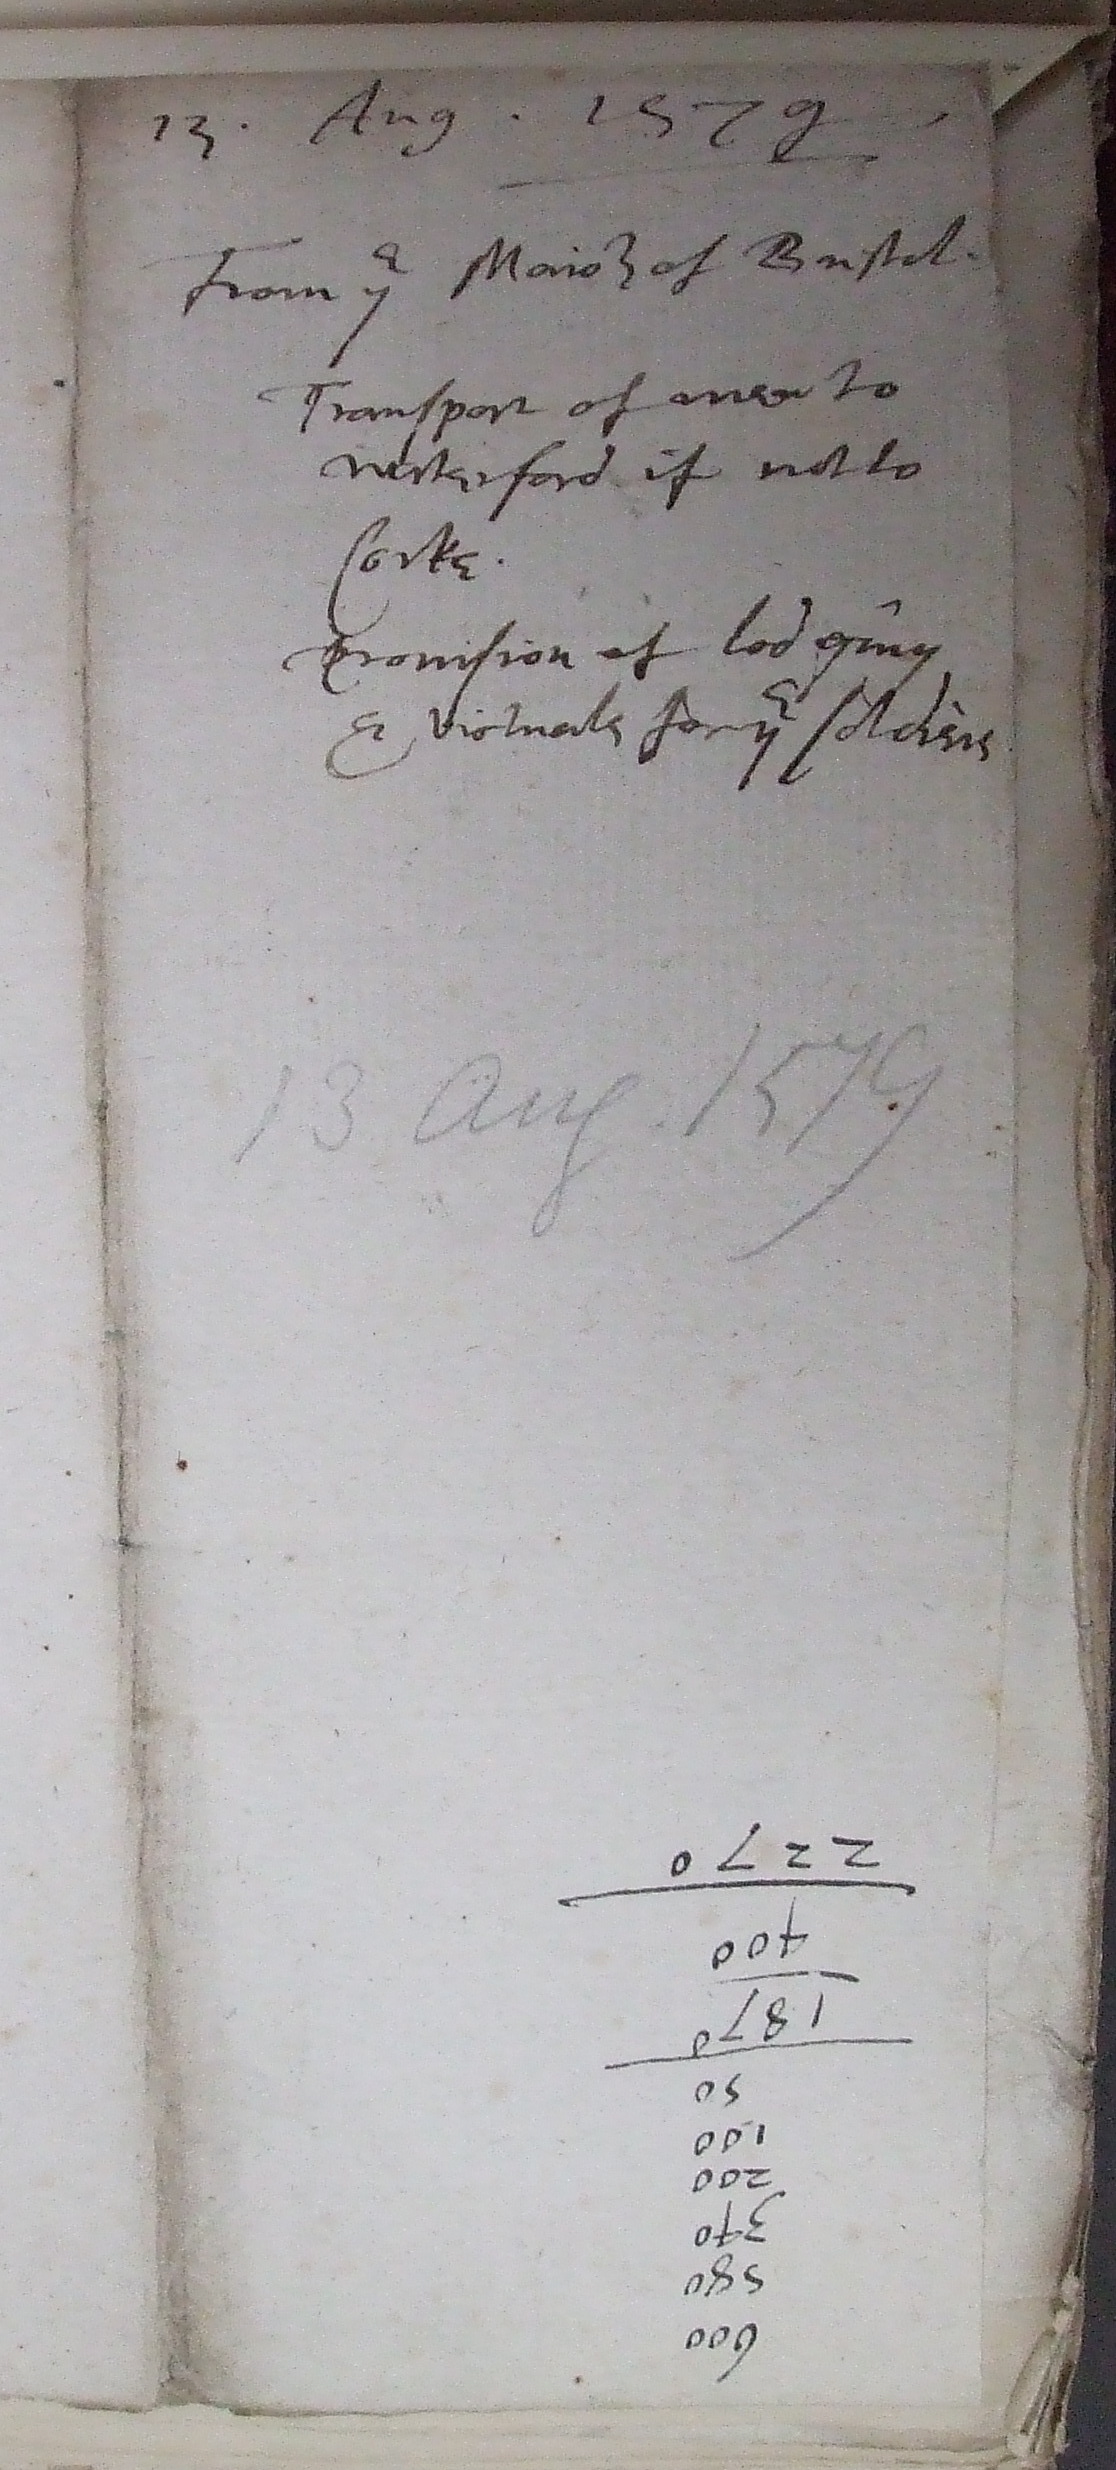 13. Aug. 1579
From yͤ Maior of Bristol.
Transport of men to
waterford if not to
Corke.
provision of lodging
& victuals for yͤ soldiers
13 Aug. 1579
600
580
340
200
100
50
1870
400
2270